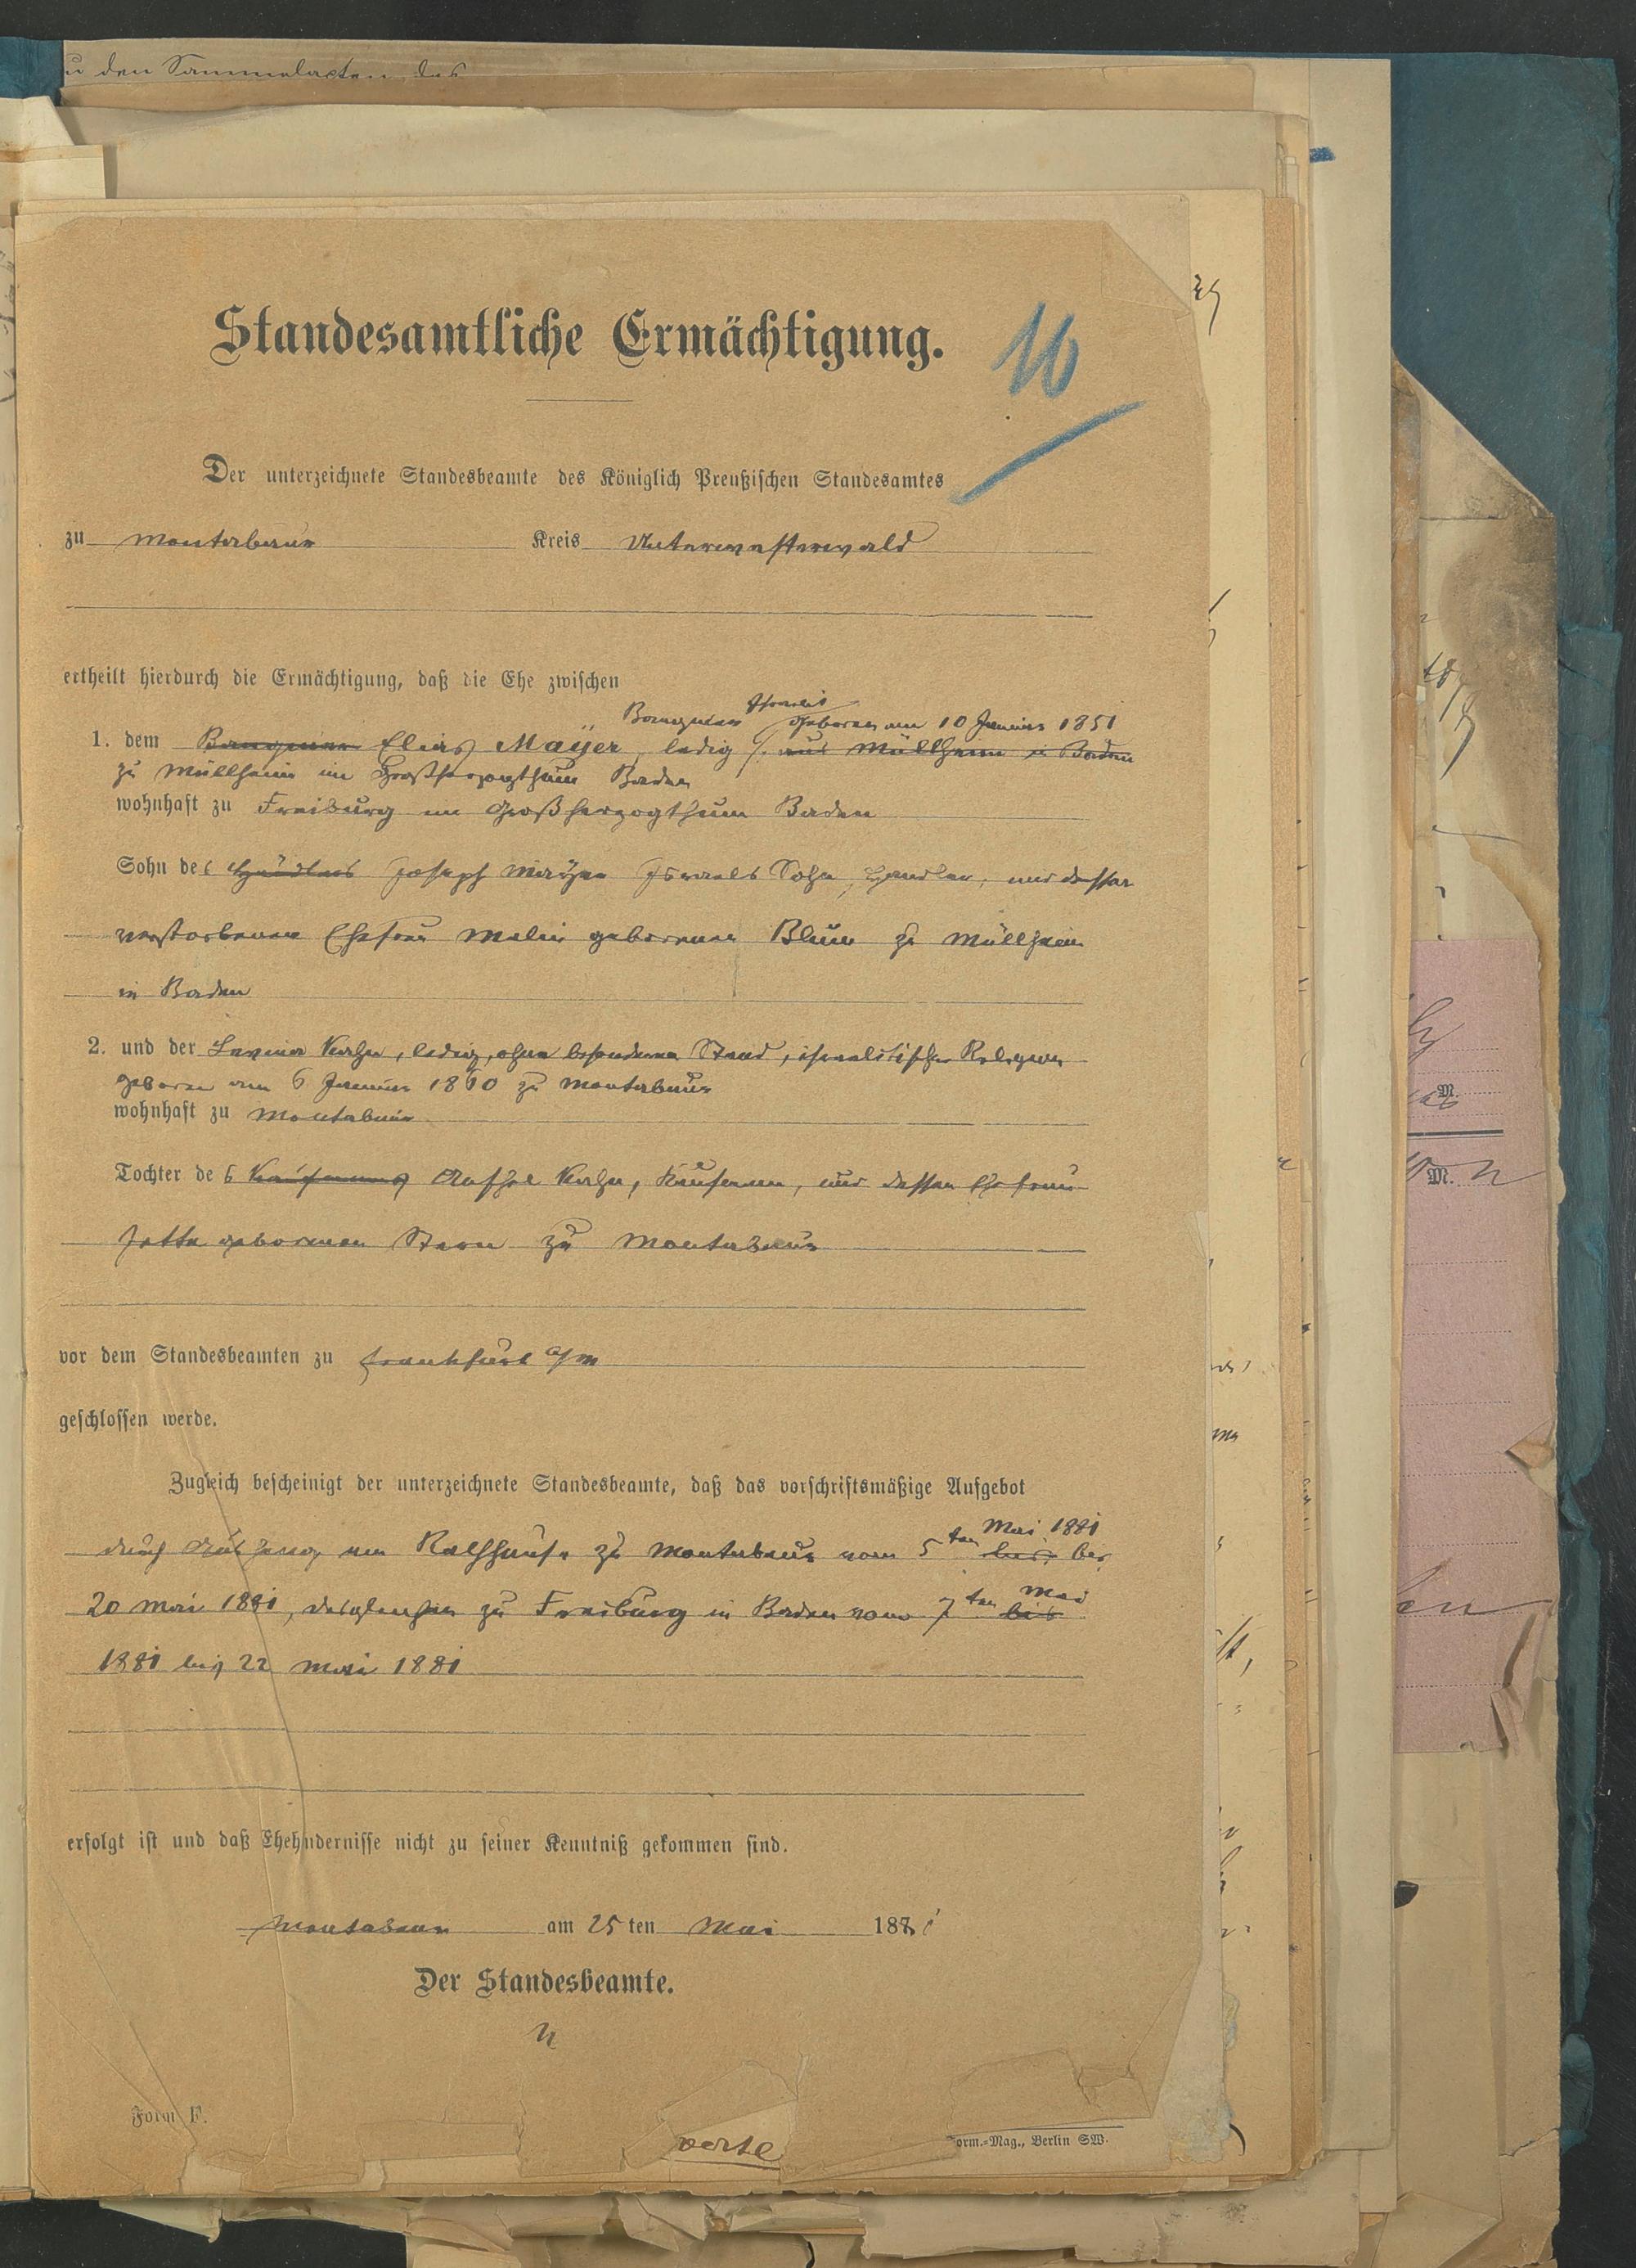 u den Sammelacten des
Standesamtliche Ermächtigung.
16
Der unterzeichnete Standesbeamte des Königlich Preußischen Standesamtes
zu Montabaur Kreis Unterwesterwald
ertheilt hierdurch die Ermächtigung, daß die Ehe zwischen
Banquier Israelit geboren am 10 Januar 1851
1. dem Banquier Elias Maÿer, ledig, aus Müllheim in Baden
zu Müllheim im Großherzogthum Baden
wohnhaft zu Freiburg im Großherzogthum Baden
Sohn des Händlers Joseph Maÿer Israels Sohn, Händler, und dessen
verstorbenen Ehefrau geborenen Blum zu Müllheim
in Baden
2. und der Kahn, ledig, ohne besonderen Stand, israelitischer Religion
geboren am 6 Januar 1860 zu Montabaur
wohnhaft zu Montabaur
Tochter des Kaufmanns Kahn, Kaufmann, und dessen Ehefrau
Jette geborenen Stern zu Montabaur
vor dem Standesbeamten zu Frankfurt a/m
geschlossen werde.
Zugleich bescheinigt der unterzeichnete Standesbeamte, daß das vorschriftsmäßige Aufgebot
Mai 1881
durch Aushang am Rathhause zu Montabaur vom 5ten bis bis
Mai
20 Mai 1881, desgleichen zu Freiburg in Baden vom 7ten bis
1881 bis 22 Mai 1881
erfolgt ist und daß Ehehindernisse nicht zu seiner Kenntniß gekommen sind.
Montabaur am 25ten Mai 1881
Der Standesbeamte.
Form F.
verte
Form.-Mag., Berlin SW.
M.
M.